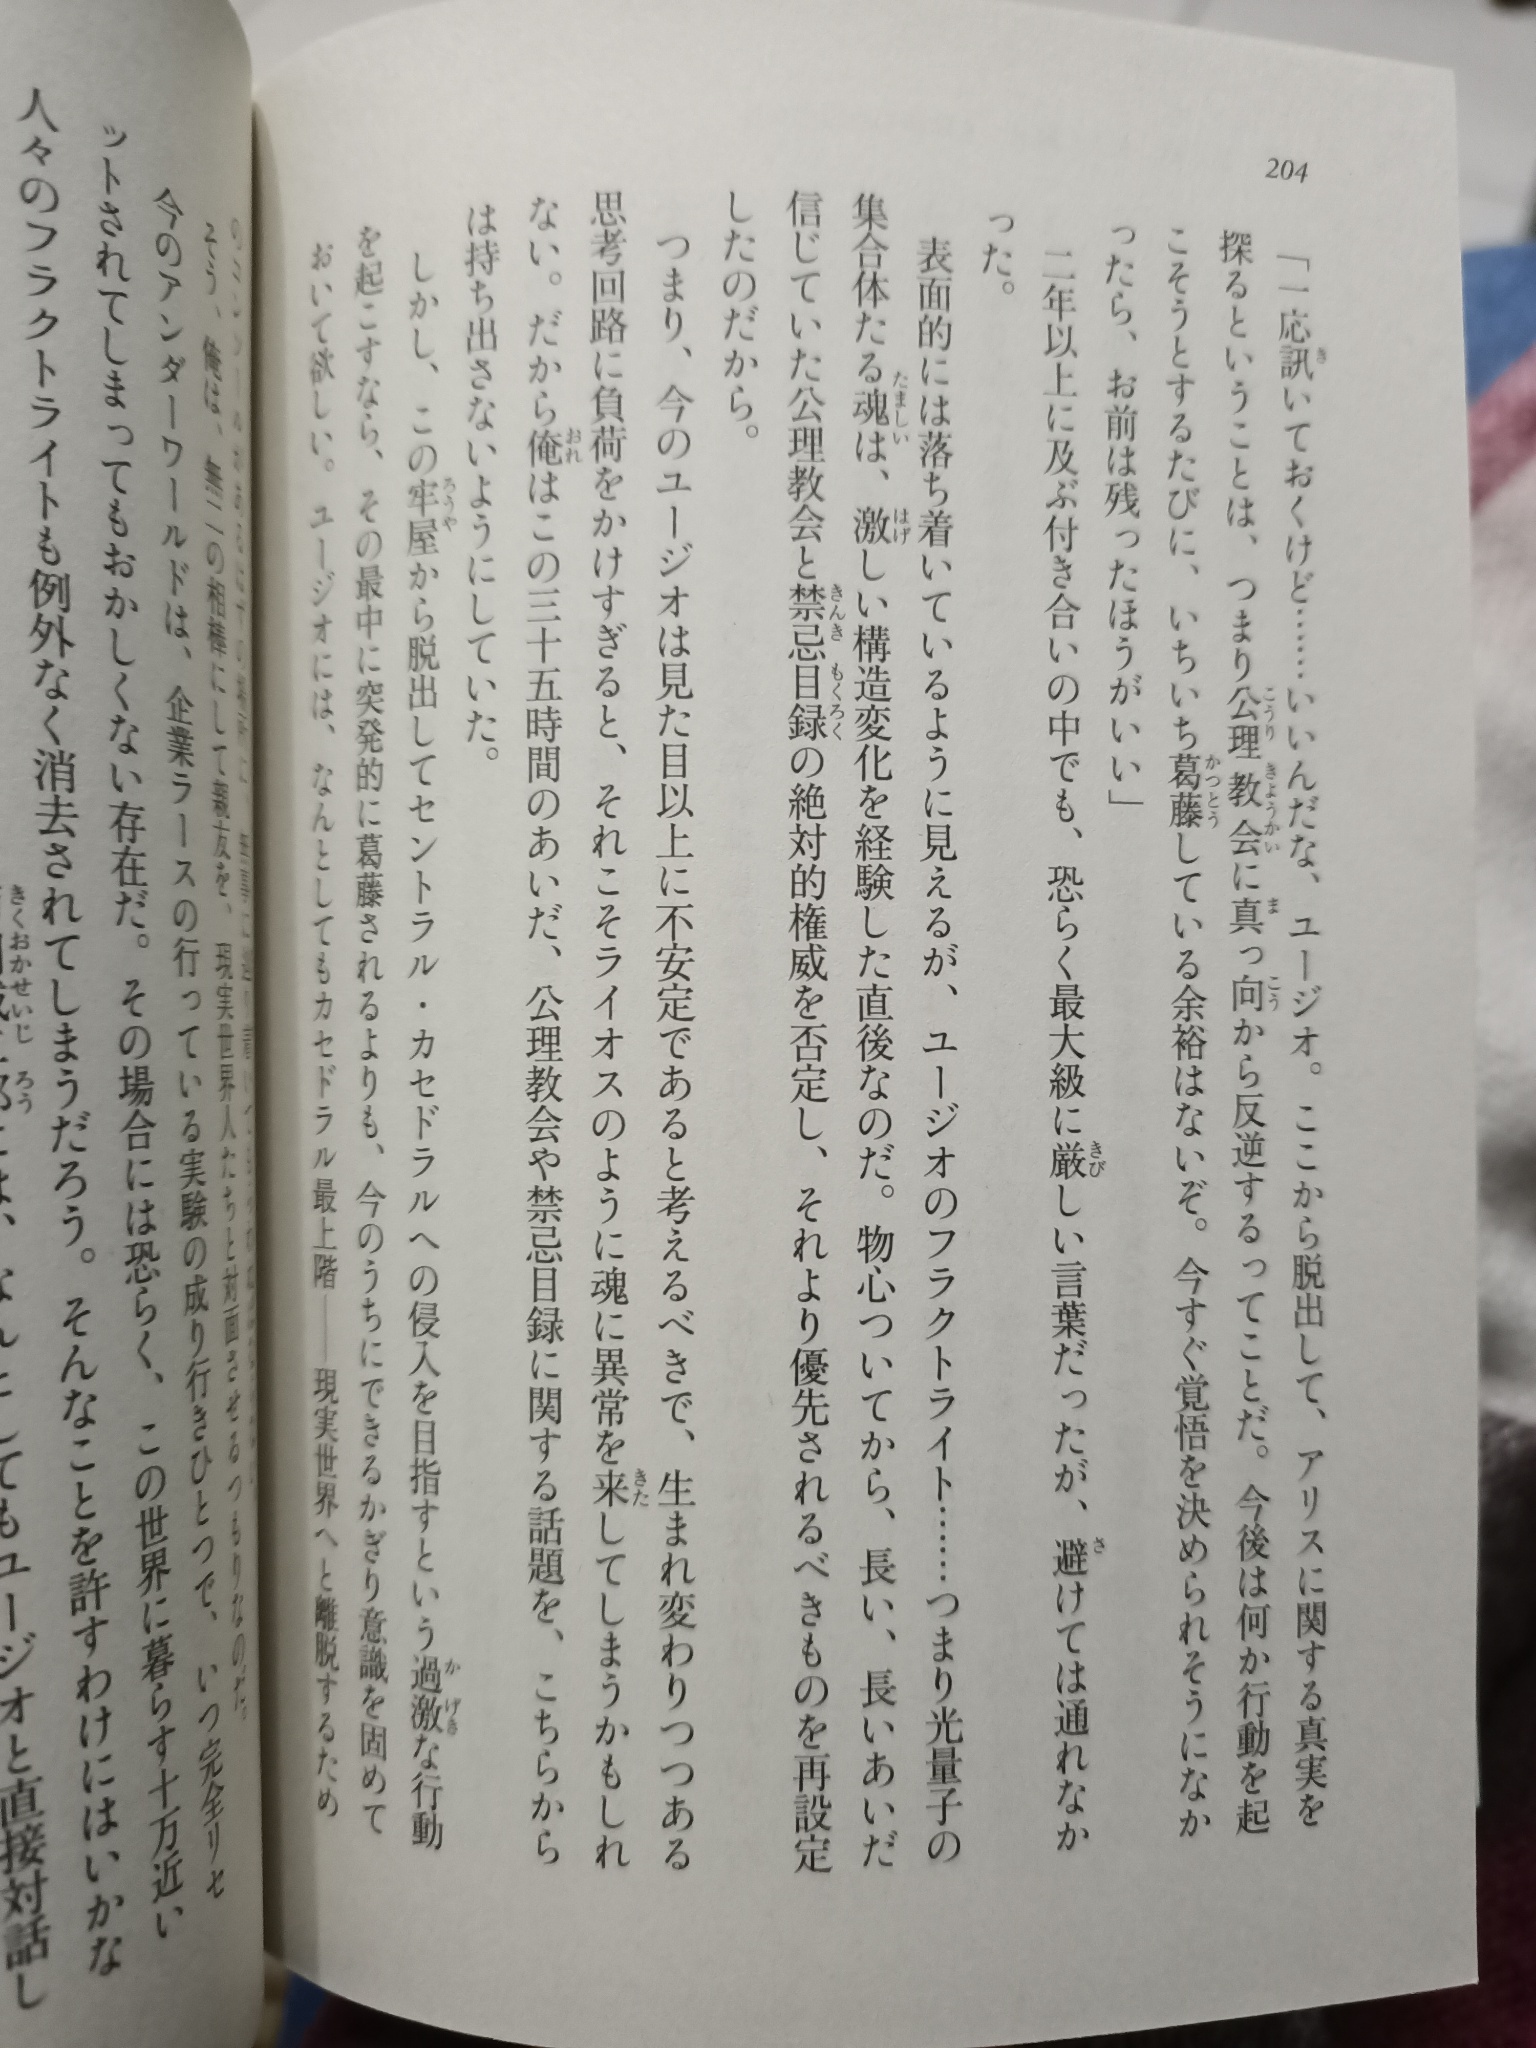 204
「一応訊いておくけど……いいんだな、ユージオ。ここから脱出して、アリスに関する真実を
探るということは、つまり公理教会に真っ向から反逆するってことだ。今後は何か行動を起
こそうとするたびに、いちいち葛藤している余裕はないぞ。今すぐ覚悟を決められそうになか
ったら、お前は残ったほうがいい」
二年以上に及ぶ付き合いの中でも、恐らく最大級に厳しい言葉だったが、避けては通れなか
った。
表面的には落ち着いているように見えるが、ユージオのフラクトライト……つまり光量子の
集合体たる魂は、激しい構造変化を経験した直後なのだ。物心ついてから、長い、長いあいだ
信じていた公理教会と禁忌目録の絶対的権威を否定し、それより優先されるべきものを再設定
したのだから。
つまり、今のユージオは見た目以上に不安定であると考えるべきで、生まれ変わりつつある
思考回路に負荷をかけすぎると、それこそライオスのように魂に異常を来してしまうかもしれ
ない。だから俺はこの三十五時間のあいだ、公理教会や禁忌目録に関する話題を、こちらから
は持ち出さないようにしていた。
しかし、この牢屋から脱出してセントラル・カセドラルへの侵入を目指すという過激な行動
を起こすなら、その最中に突発的に葛藤されるよりも、今のうちにできるかぎり意識を固めて
おいて欲しい。ユージオには、なんとしてもカセドラル最上階――現実世界へと離脱するため
そう、俺は、無二の相棒にして親友を、現実世界人たちと対面させるつもりなのだ。
今のアンダーワールドは、企業ラースの行っている実験の成り行きひとつで、いつ完全リセ
ットされてしまってもおかしくない存在だ。その場合には恐らく、この世界に暮らす十万近い
人々のフラクトライトも例外なく消去されてしまうだろう。そんなことを許すわけにはいかな
なんとしてもユージオと直接対話し